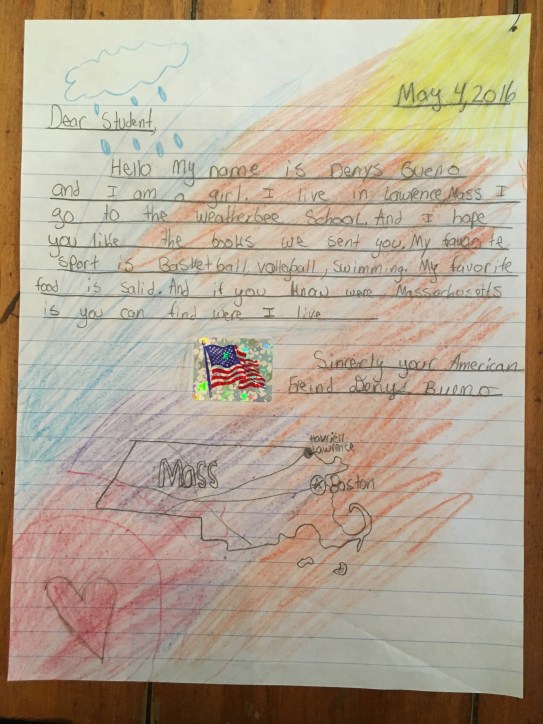 May 4, 2016
Dear Student,
Hello My name is Denys Bueno
and I am a girl. I live in Lawrence, Mass I
go to the weatherbee School. And I hope
you like the books we sent you. My favorite
sport is Basketball, volleyball, swimming. My favorite
food is salid. And if you know were Massachusetts
is you can find were I live
Sincerly your American
freind Denys Bueno
Lawrence
Mass
Boston